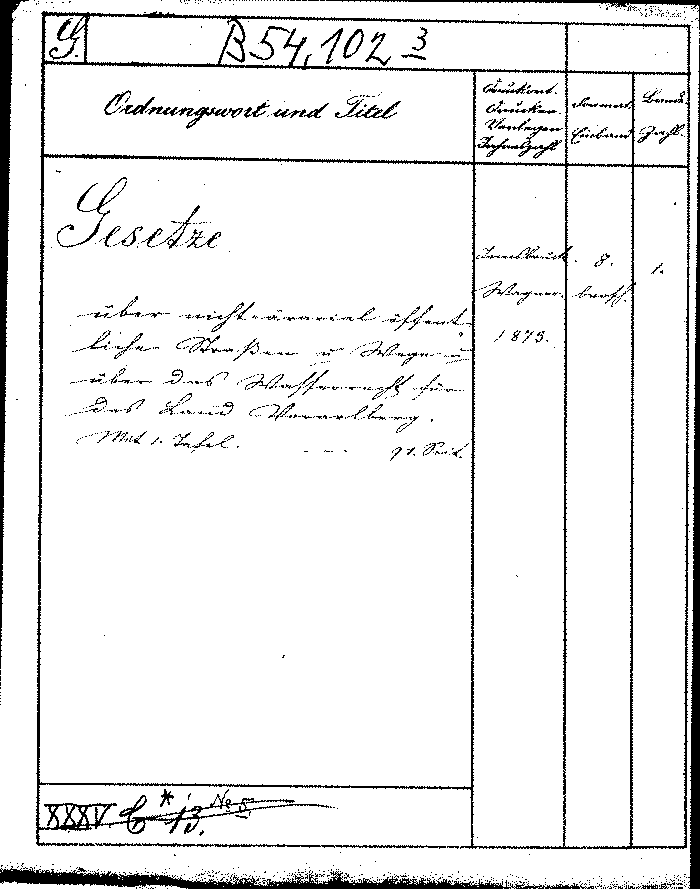 G.
B 54,102 3
Ordnungswort und Titel
Druckort.
Drucker.
Verleger
Jahreszahl
Format.
Einband
Bände
Zahl.
Gesetze
über nicht-ärarial öffent-
liche Straßen u Wege u
über das Wasserrecht für
das Land Vorarlberg.
Mit 1. Tafel. - - - 91. Seit.
Innsbruck.
Wagner.
1873.
8.
brosch.
1.
XXXV. C* 13. No 5